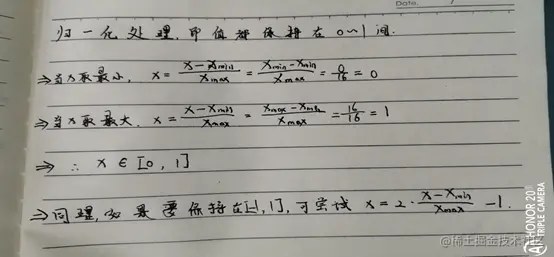 Date.
归一化处理,即值都保持在0~1间.
⇒当x取最小, x = (x-xmin)/xmax = (xmin-xmin)/xmax = 0/16 = 0
⇒当x取最大. x = (x-xmin)/xmax = (xmax-xmin)/xmax = 16/16 = 1
⇒ ∴ x ∈ [0, 1]
⇒同理,如果要保持在[-1,1],可尝试 x = 2·(x-xmin)/xmax -1.
HONOR 20
TRIPLE CAMERA
@稀土掘金技术社区